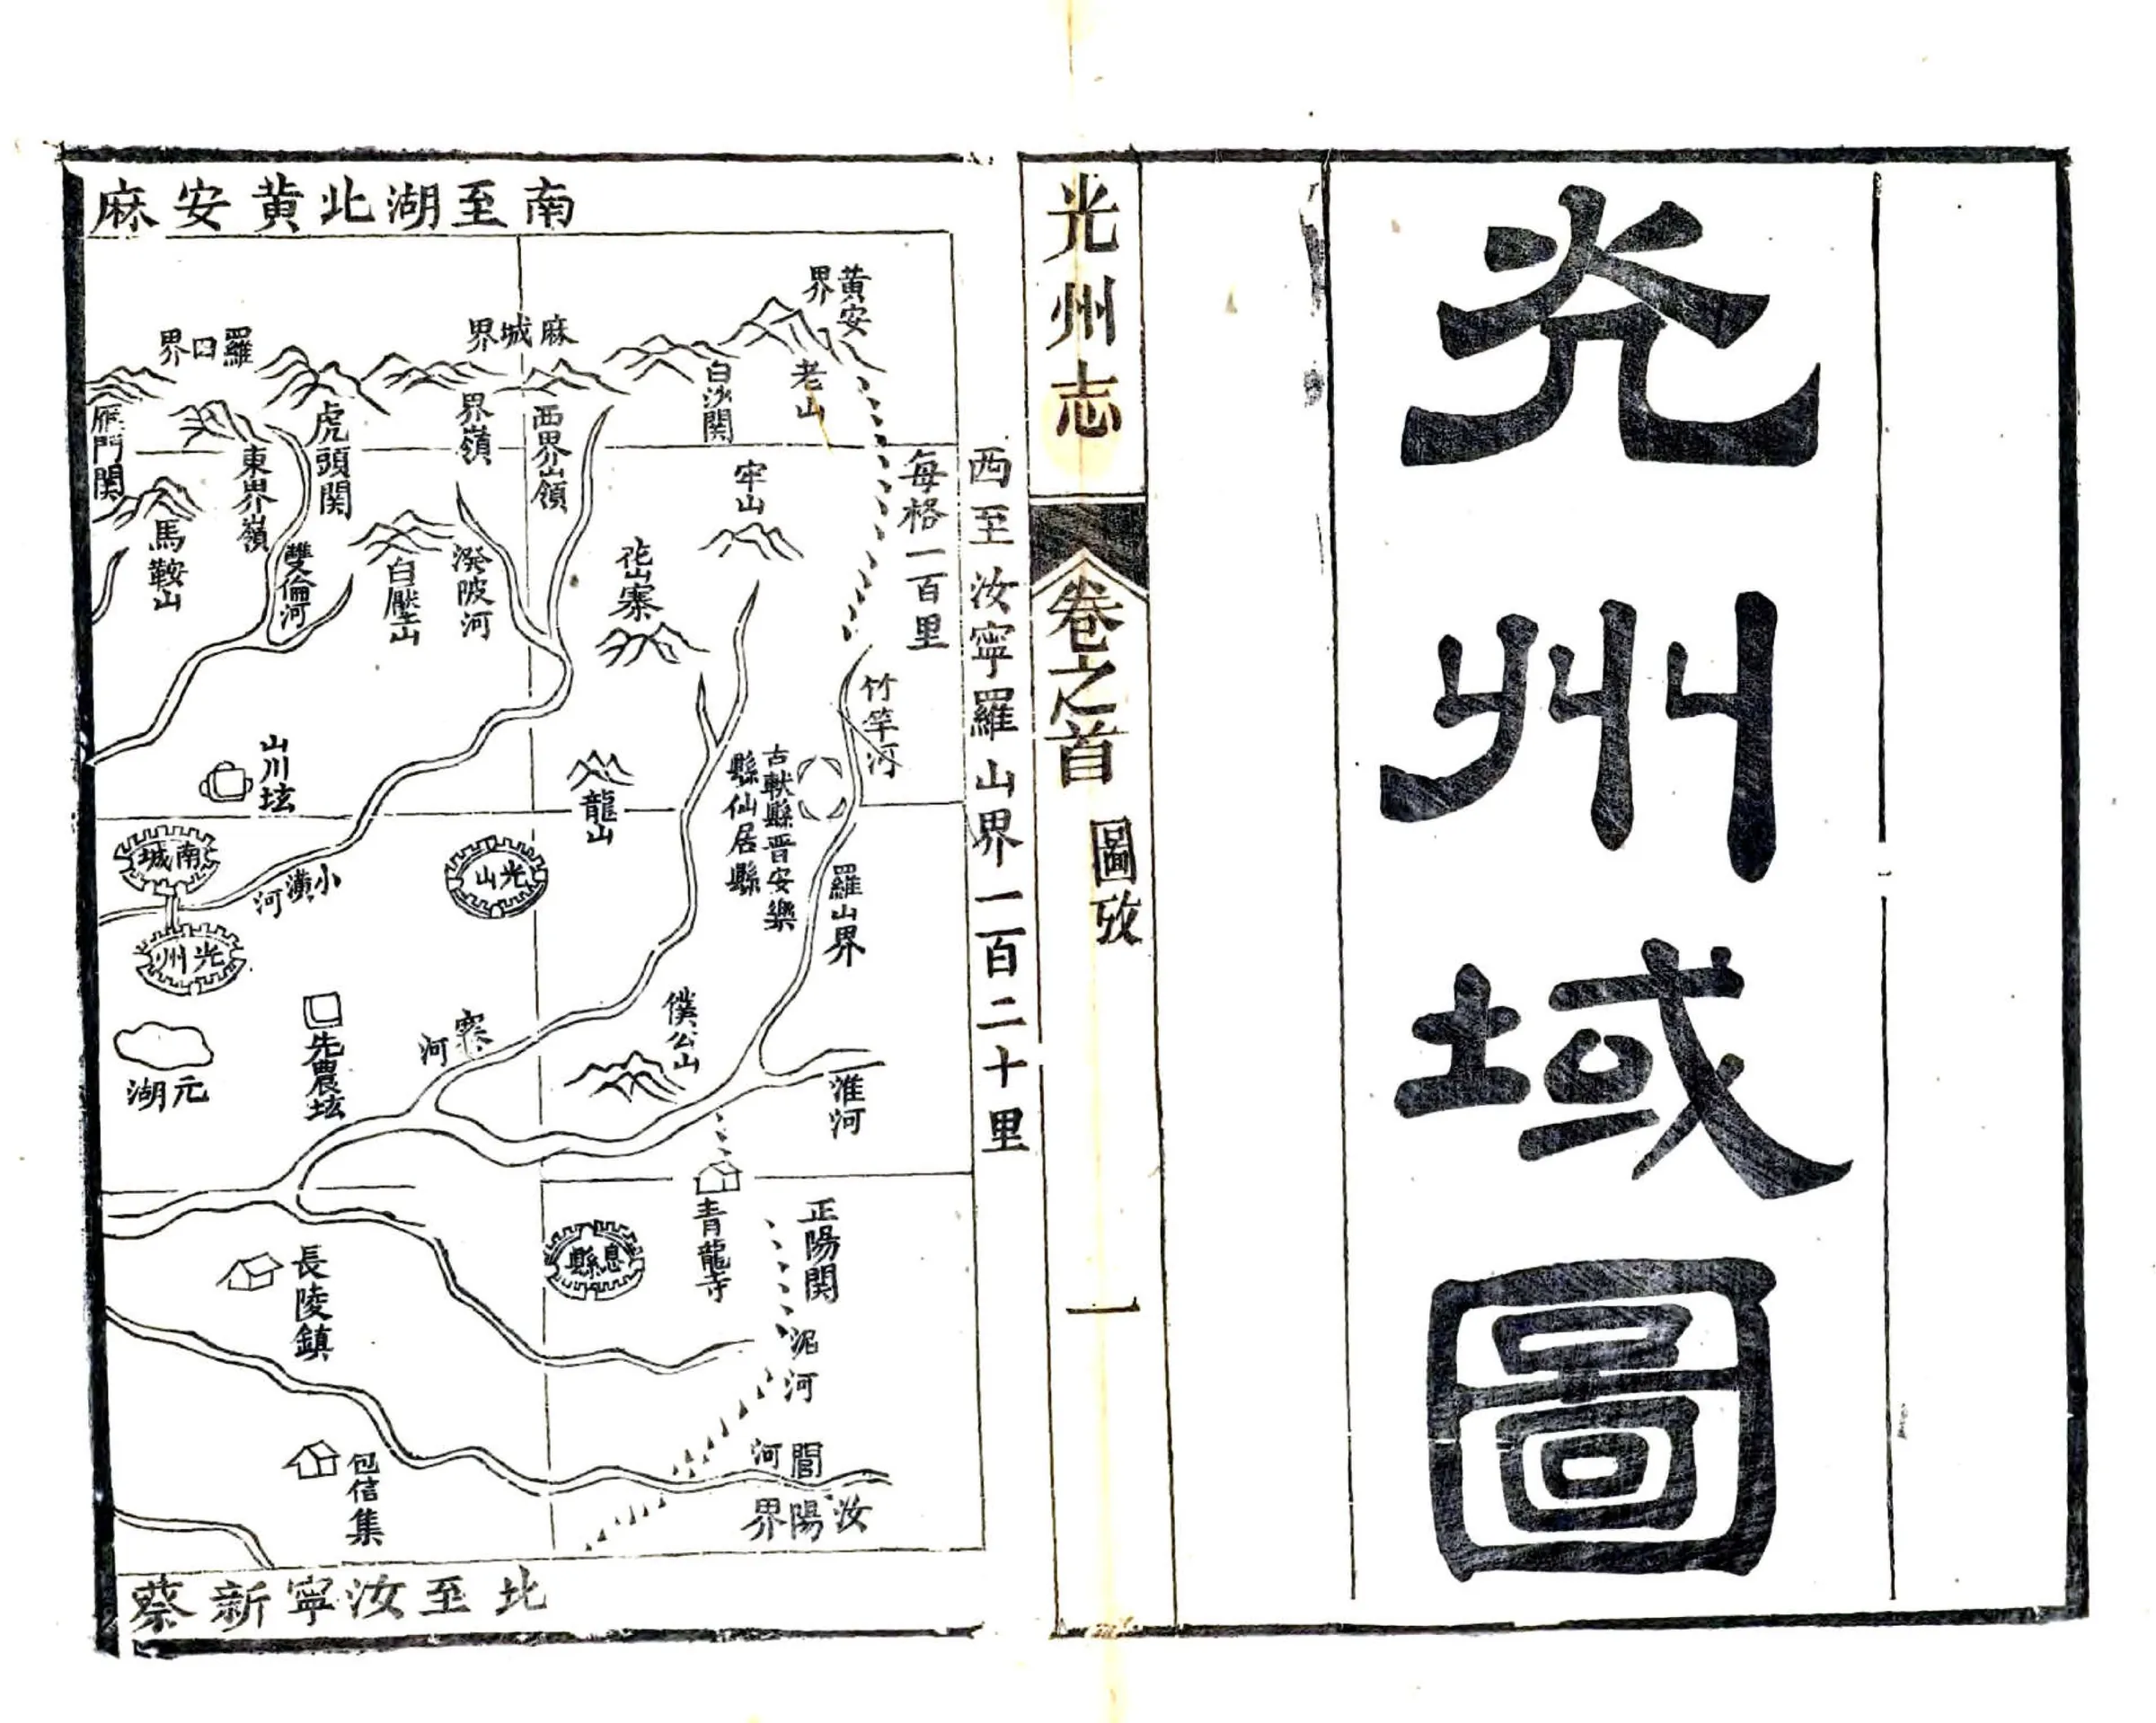 光州域圖
光州志
卷之首
圖攷
一
南至湖北黃安麻
西至汝寧羅山界一百二十里
每格一百里
黃安
界
老山
白沙関
麻城界
西界嶺
界嶺
虎頭関
羅田界
東界嶺
雁門関
馬鞍山
雙倫河
白壓山
潑陂河
牢山
寨
竹竿河
龍山
古軑縣晋安樂
縣仙居縣
羅山界
山川坛
南城
光州
小潢河
光山
先農坛
元湖
寨河
僕公山
淮河
青龍寺
息縣
正陽関
泥河
長陵鎮
包信集
閭河
汝陽界
北至汝寧新蔡